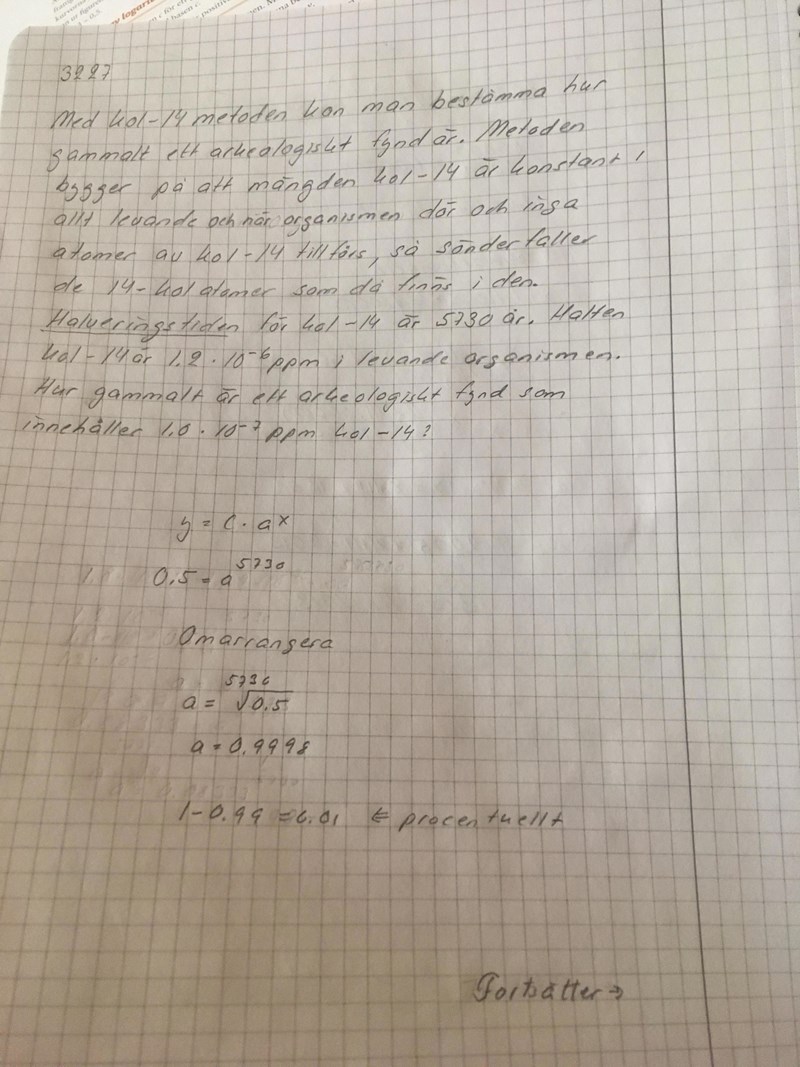 y logari
för ett
positiv
3227
Med kol-14 metoden kan man bestämma hur
gammalt ett arkealogiskt fynd är. Metoden
bygger på att mängden kol-14 är konstant i
allt levande och när organismen dör och inga
atomer av kol-14 tillförs, så sönderfaller
de 14-kol atomer som då finns i den.
Halveringstiden för kol-14 är 5730 år. Halten
kol-14 är 1.2 · 10⁻⁶ ppm i levande organismen.
Hur gammalt är ett arkeologiskt fynd som
innehåller 1.0 · 10⁻⁷ ppm kol-14?
y = C · aˣ
0.5 = a⁵⁷³⁰
Omarrangera
a = ⁵⁷³⁰√0.5
a = 0.9998
1-0.99 = 0.01 ⇐ procentuellt
Fortsätter →